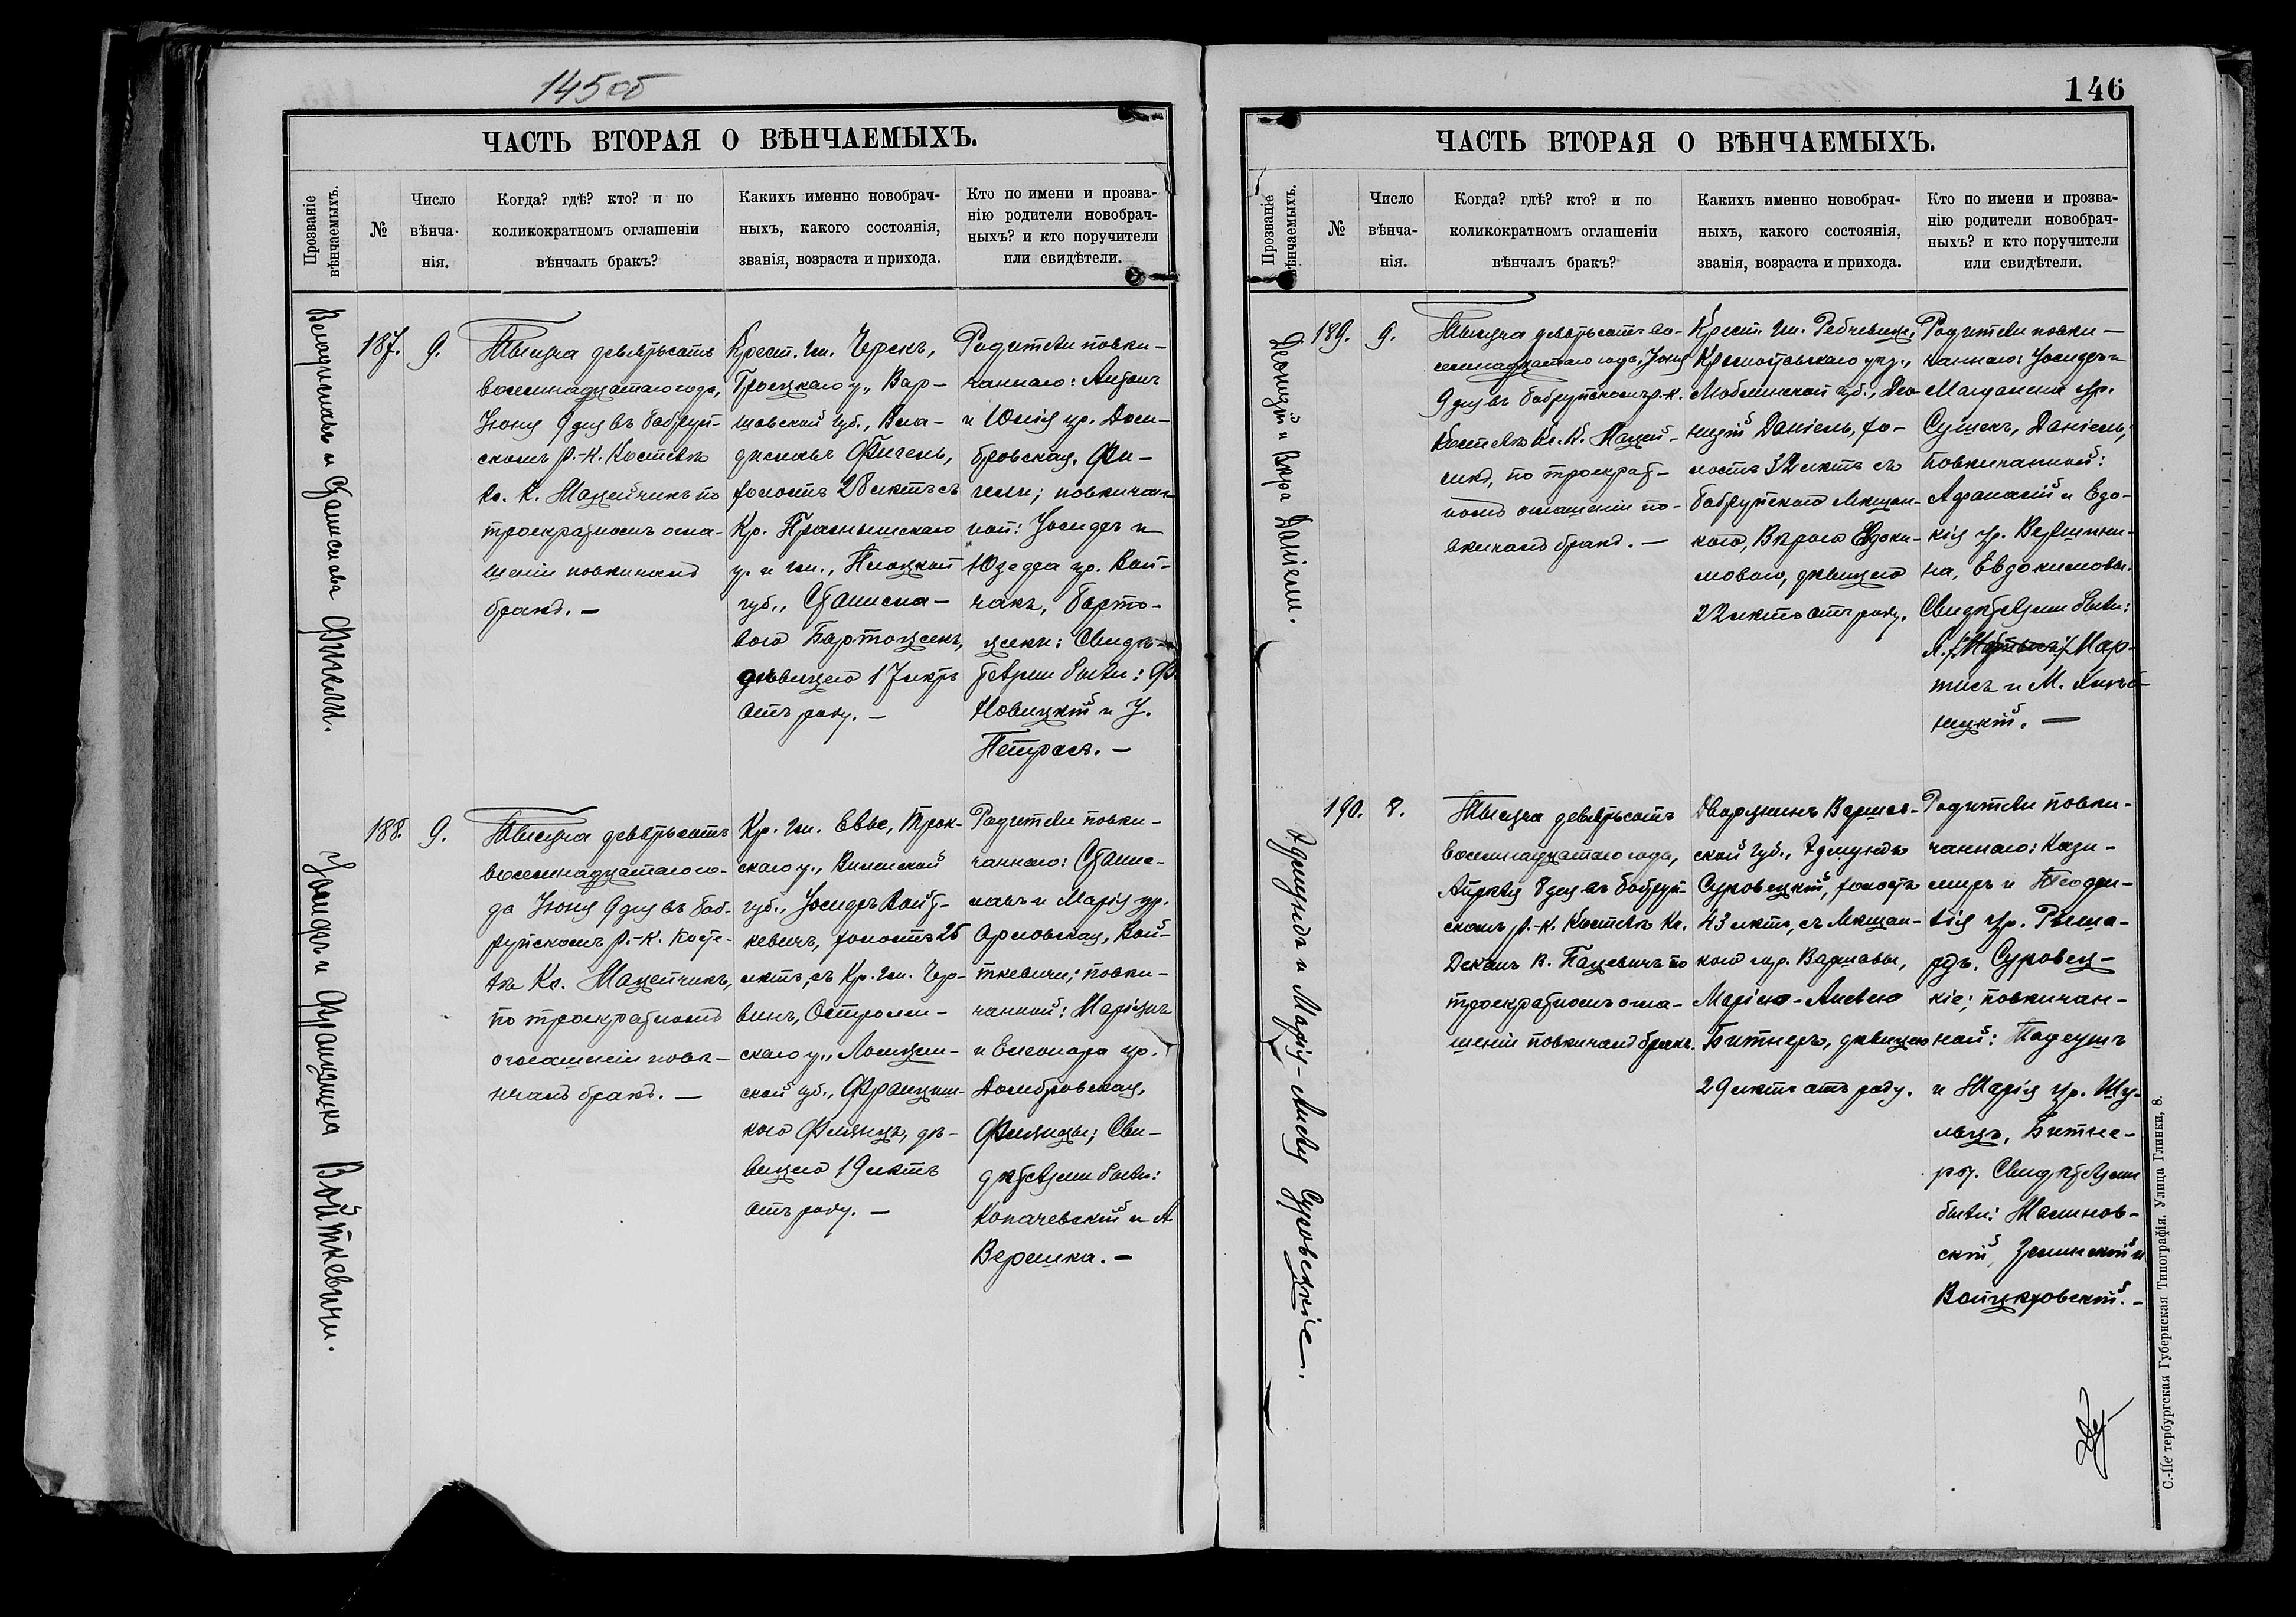 145об
ЧАСТЬ ВТОРАЯ О ВѢНЧАЕМЫХЪ.
Прозваніе
вѣнчаемыхъ.
№
Число
вѣнча-
нія.
Когда? гдѣ? кто? и по
коликократномъ оглашеніи
вѣнчалъ бракъ?
Какихъ именно новобрач-
ныхъ, какого состоянія,
званія, возраста и прихода.
Кто по имени и прозва-
нію родители новобрач-
ныхъ? и кто поручители
или свидѣтели.
и Станислава Фигели.
187.
9.
Тысяча девятьсотъ
восемнадцатаго года,
Іюня 9 дня въ Бобруй-
скомъ Р.-К. Костелѣ
Кс. К. Мацейчикъ по
троекратномъ огла-
шеніи повѣнчалъ
бракъ. —
Крест. гм. Черскъ,
Гроецкаго у., Вар-
шавской губ., Вла-
диславъ Фигель,
холостъ 28 лѣтъ съ
Кр. Праснышскаго
у. и гм., Плоцкой
губ., Станисла-
вою Бартощекъ,
дѣвицею 17 лѣтъ
отъ роду. —
Родители повѣн-
чаннаго: Антонъ
и Юлія ур. Дом-
бровская, Фи-
гели; повѣнчан-
ной: Іосифъ и
Юзефа ур. Вой-
чакъ, Барто-
щеки: Свидѣ-
телями были: Ф.
Новицкій и У.
Петрасъ. —
Іосифъ и Францишка Войткевичи.
188.
9.
Тысяча девятьсотъ
восемнадцатаго го-
да Іюня 9 дня въ Боб-
руйскомъ Р.-К. Косте-
лѣ Кс. Мацейчикъ,
по троекратномъ
оглашеніи повѣ-
нчалъ бракъ. —
Кр. гм. Еввье, Трок-
скаго у., Виленской
губ., Іосифъ Войт-
кевичъ, холостъ 25
лѣтъ, съ Кр. гм. Чер-
винъ, Остролен-
скаго у., Ломжин-
ской губ., Францишк-
кою Филянцъ, дѣ-
вицею 19 лѣтъ
отъ роду. —
Родители повѣн-
чаннаго: Станис-
лавъ и Марія ур.
Орловская, Вой-
ткевичи; повѣн-
чанной: Маріянъ
и Елеонора ур.
Домбровская,
Филянцы; Сви-
дѣтелями были:
Копачевскій и А.
Верешка. —
146
ЧАСТЬ ВТОРАЯ О ВѢНЧАЕМЫХЪ.
Прозваніе
вѣнчаемыхъ.
№
Число
вѣнча-
нія.
Когда? гдѣ? кто? и по
коликократномъ оглашеніи
вѣнчалъ бракъ?
Какихъ именно новобрач-
ныхъ, какого состоянія,
званія, возраста и прихода.
Кто по имени и прозва-
нію родители новобрач-
ныхъ? и кто поручители
или свидѣтели.
Леонцій и Вѣра Даніели.
189.
9.
Тысяча девятьсотъ во-
семнадцатаго года, Іюня
9 дня въ Бобруйскомъ р.-к.
Костелѣ Кс. К. Мацей-
чикъ, по троекрат-
номъ оглашеніи по-
вѣнчалъ бракъ. —
Крест. гм.
Красноставскаго уѣз.,
Люблинской губ., Лео-
нцій Даніель, хо-
лостъ 32 лѣтъ съ
Бобруйскою мѣщан-
кою, Вѣрою Евдоки-
мовою, дѣвицею
22 лѣтъ отъ роду.
Родители повѣн-
чаннаго: Іосифъ и
Магдалина ур.
Сушекъ, Даніель;
Повѣнчанной:
Афанасій и Евдо-
кія ур. Вершини-
на, Евдокимовы.
Свидѣтелями были:
Мар-
тисъ и М.
ницкій. —
Эдмундъ и Марія-Анеля Суровецкіе.
190.
8.
Тысяча девятьсотъ
восемнадцатаго года,
Апрѣля 8 дня въ Бобруй-
скомъ р.-к. Костелѣ Кс.
Деканъ В. Пацевичъ по
троекратномъ огла-
шеніи повѣнчалъ бракъ.
Дворянинъ Варшав-
ской губ., Эдмундъ
Суровецкій, холостъ
43 лѣтъ, съ мѣщан-
кою гор. Варшавы,
Маріею-Анелею
Битнеръ, дѣвицею
29 лѣтъ отъ роду.
Родители повѣн-
чаннаго: Кази-
миръ и Теофи-
лія ур.
Суровец-
кіе; повѣнчан-
ной: Тадеушъ
и Марія ур. Шу-
льцъ, Битне-
ры. Свидѣтелями
были: Малинов-
скій, Зелинскій и
Войцеховскій. —
С.-Петербургская Губернская Типографія. Улица Глинки, 8.